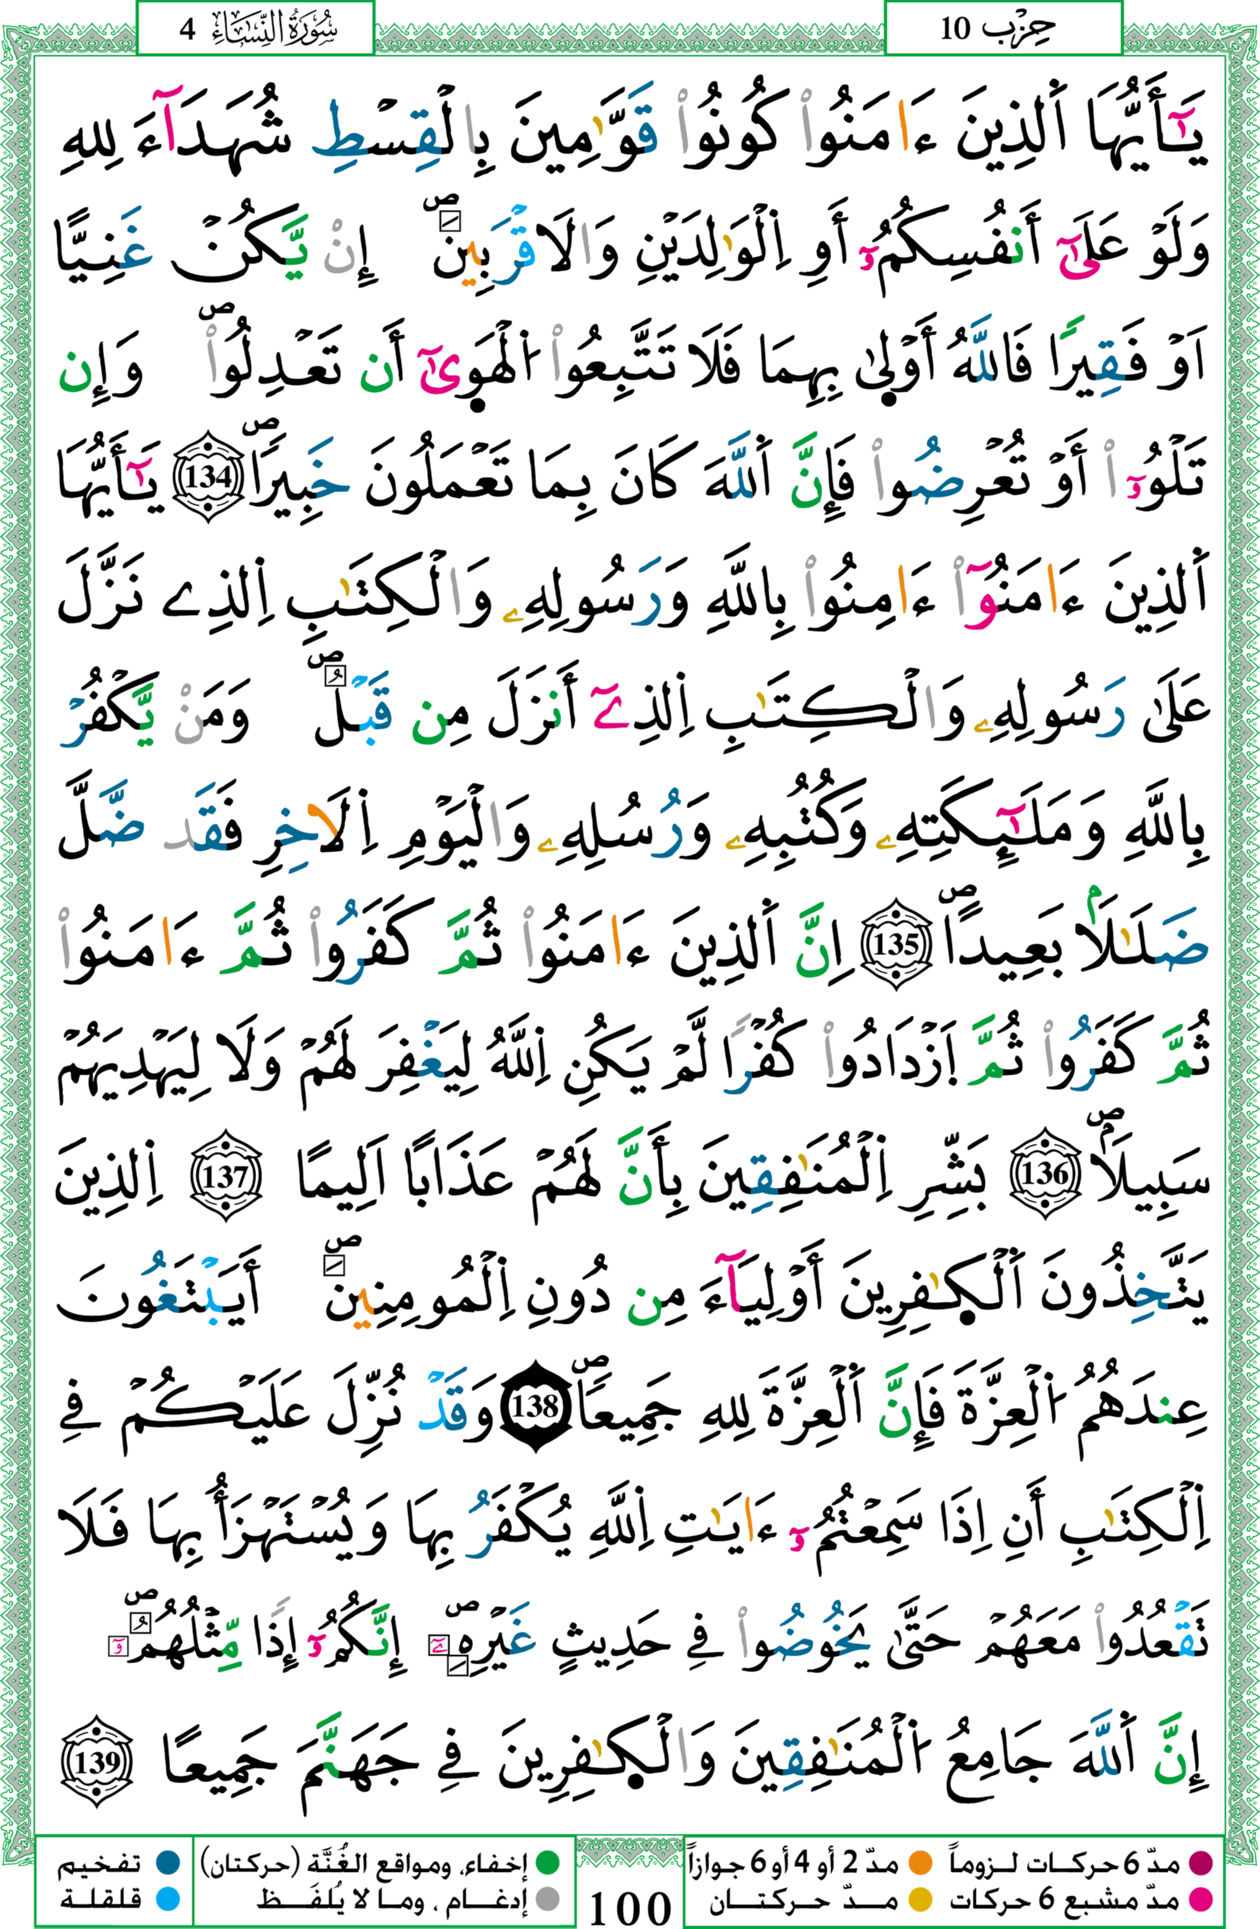 حِزْب 10
سُورَةُ النِّسَاءِ 4
يَٰٓأَيُّهَا اَ۬لذِينَ ءَامَنُواْ كُونُواْ قَوَّٰمِينَ بِالْقِسْطِ شُهَدَآءَ لِلهِ
وَلَوْ عَلَىٰٓ أَنفُسِكُمُۥٓ أَوِ اِ۬لْوَٰلِدَيْنِ وَالَاقْرَبِينَۖ إِنْ يَّكُنْ غَنِيًّا
اَوْ فَقِيرًا فَاللَّهُ أَوْلَىٰ بِهِمَا فَلَا تَتَّبِعُواْ اُ۬لْهَوَىٰٓ أَن تَعْدِلُواْۖ وَإِن
تَلْوُۥٓاْ أَوْ تُعْرِضُواْ فَإِنَّ اَ۬للَّهَ كَانَ بِمَا تَعْمَلُونَ خَبِيرًاۖ 134 يَٰٓأَيُّهَا
اَ۬لذِينَ ءَامَنُوٓاْ ءَامِنُواْ بِاللَّهِ وَرَسُولِهِۦ وَالْكِتَٰبِ اِ۬لذِے نَزَّلَ
عَلَىٰ رَسُولِهِۦ وَالْكِتَٰبِ اِ۬لذِےٓ أَنزَلَ مِن قَبْلُۖ وَمَنْ يَّكْفُرْ
بِاللَّهِ وَمَلَٰٓئِكَتِهِۦ وَكُتُبِهِۦ وَرُسُلِهِۦ وَالْيَوْمِ اِ۬لَاخِرِ فَقَد ضَّلَّ
ضَلَٰلَاۢ بَعِيدًاۖ 135 اِنَّ اَ۬لذِينَ ءَامَنُواْ ثُمَّ كَفَرُواْ ثُمَّ ءَامَنُواْ
ثُمَّ كَفَرُواْ ثُمَّ اَ۪زْدَادُواْ كُفْرًا لَّمْ يَكُنِ اِ۬للَّهُ لِيَغْفِرَ لَهُمْ وَلَا لِيَهْدِيَهُمْ
سَبِيلَاۢۖ 136 بَشِّرِ اِ۬لْمُنَٰفِقِينَ بِأَنَّ لَهُمْ عَذَابًا اَلِيمًا 137 اِ۬لذِينَ
يَتَّخِذُونَ اَ۬لْكَٰفِرِينَ أَوْلِيَآءَ مِن دُونِ اِ۬لْمُومِنِينَۖ أَيَبْتَغُونَ
عِندَهُمُ اُ۬لْعِزَّةَ فَإِنَّ اَ۬لْعِزَّةَ لِلهِ جَمِيعًاۖ 138 وَقَدْ نُزِّلَ عَلَيْكُمْ فِے
اِ۬لْكِتَٰبِ أَنِ اِذَا سَمِعْتُمُۥٓ ءَايَٰتِ اِ۬للَّهِ يُكْفَرُ بِهَا وَيُسْتَهْزَأُ بِهَا فَلَا
تَقْعُدُواْ مَعَهُمْ حَتَّىٰ يَخُوضُواْ فِے حَدِيثٍ غَيْرِهِۦٓۖ إِنَّكُمُۥٓ إِذًا مِّثْلُهُمُۥٓۖ
إِنَّ اَ۬للَّهَ جَامِعُ اُ۬لْمُنَٰفِقِينَ وَالْكَٰفِرِينَ فِے جَهَنَّمَ جَمِيعًا 139
مدّ 6 حركات لـزوماً مدّ 2 أو 4 أو 6 جوازاً إخفاء، ومواقع الغُنَّة (حركتان) تفخيم
مدّ مشبع 6 حركات مـدّ حركتــان إدغـام ، ومـا لا يُلفَـظ قلقلة
100